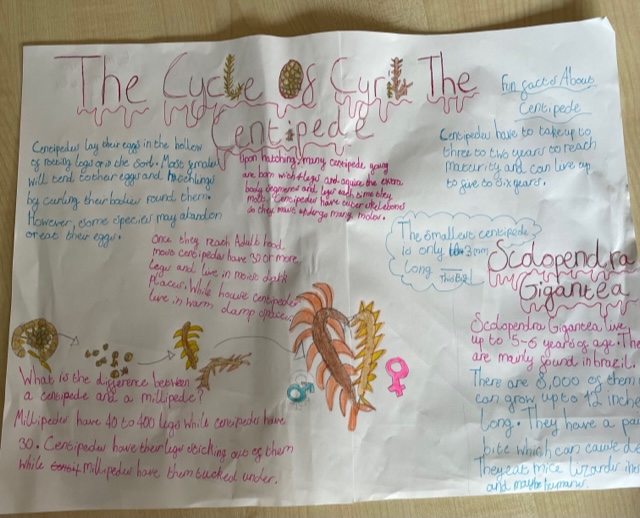 The Cycle Of Cyril The
Centipede
Centipedes lay their eggs in the hollow
of rotting logs or in the soil. Most females
will tend to their eggs and hatchlings
by curling their bodies round them.
However, some species may abandon
or eat their eggs.
Upon hatching, many centipede young
are born with legs and aquire the extra
body segments and legs each time they
molt. Centipedes have outer skeletons
so they must undergo many molts.
Once they reach Adult hood
most centipedes have 30 or more
legs and live in moist dark
places. While house centipedes
live in warm damp spaces.
Fun facts About
Centipede
Centipedes have to take up to
three to two years to reach
maturity and can live up
to five to six years.
The smallest centipede
is only 3mm
long this big
Scolopendra
Gigantea
Scolopendra Gigantea live
up to 5-6 years of age. The
are mainly found in brazil.
There are 8,000 of them
can grow up to 12 inche
long. They have a pai
bite which can cause de
They eat mice lizards
and maybe humans.
What is the difference between
a centipede and a millipede?
Millipedes have 40 to 400 legs while centipedes have
30. Centipedes have their legs sticking out of them
while millipedes have them tucked under.